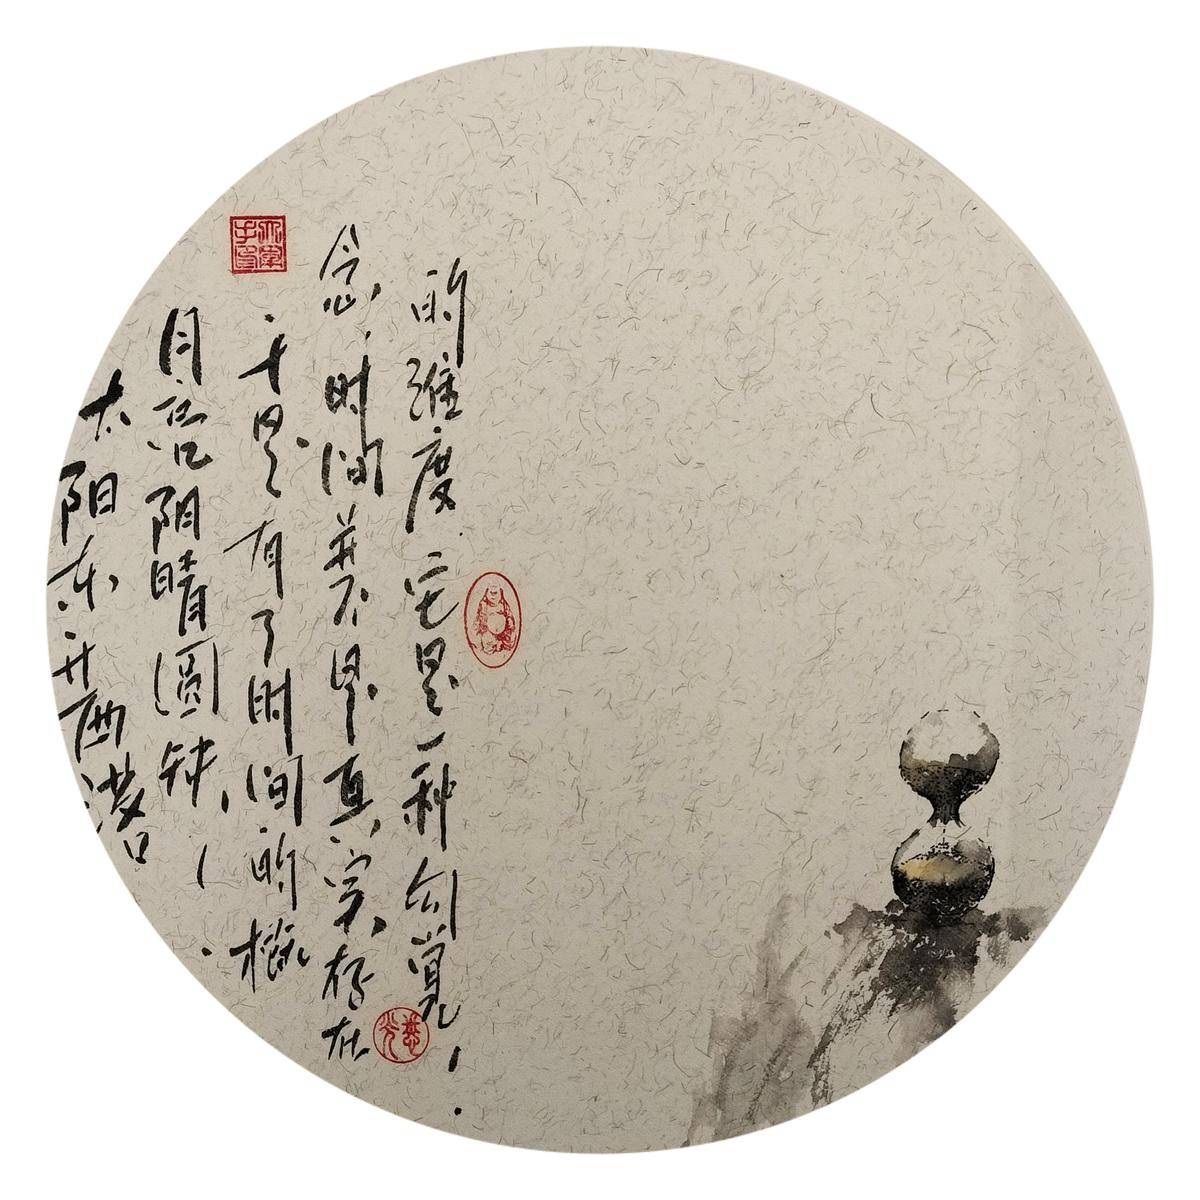 太阳东升西落
月亮阴晴圆缺！
于是有了时间的概
念，时间并不是真实存在
的维度它是一种幻觉！